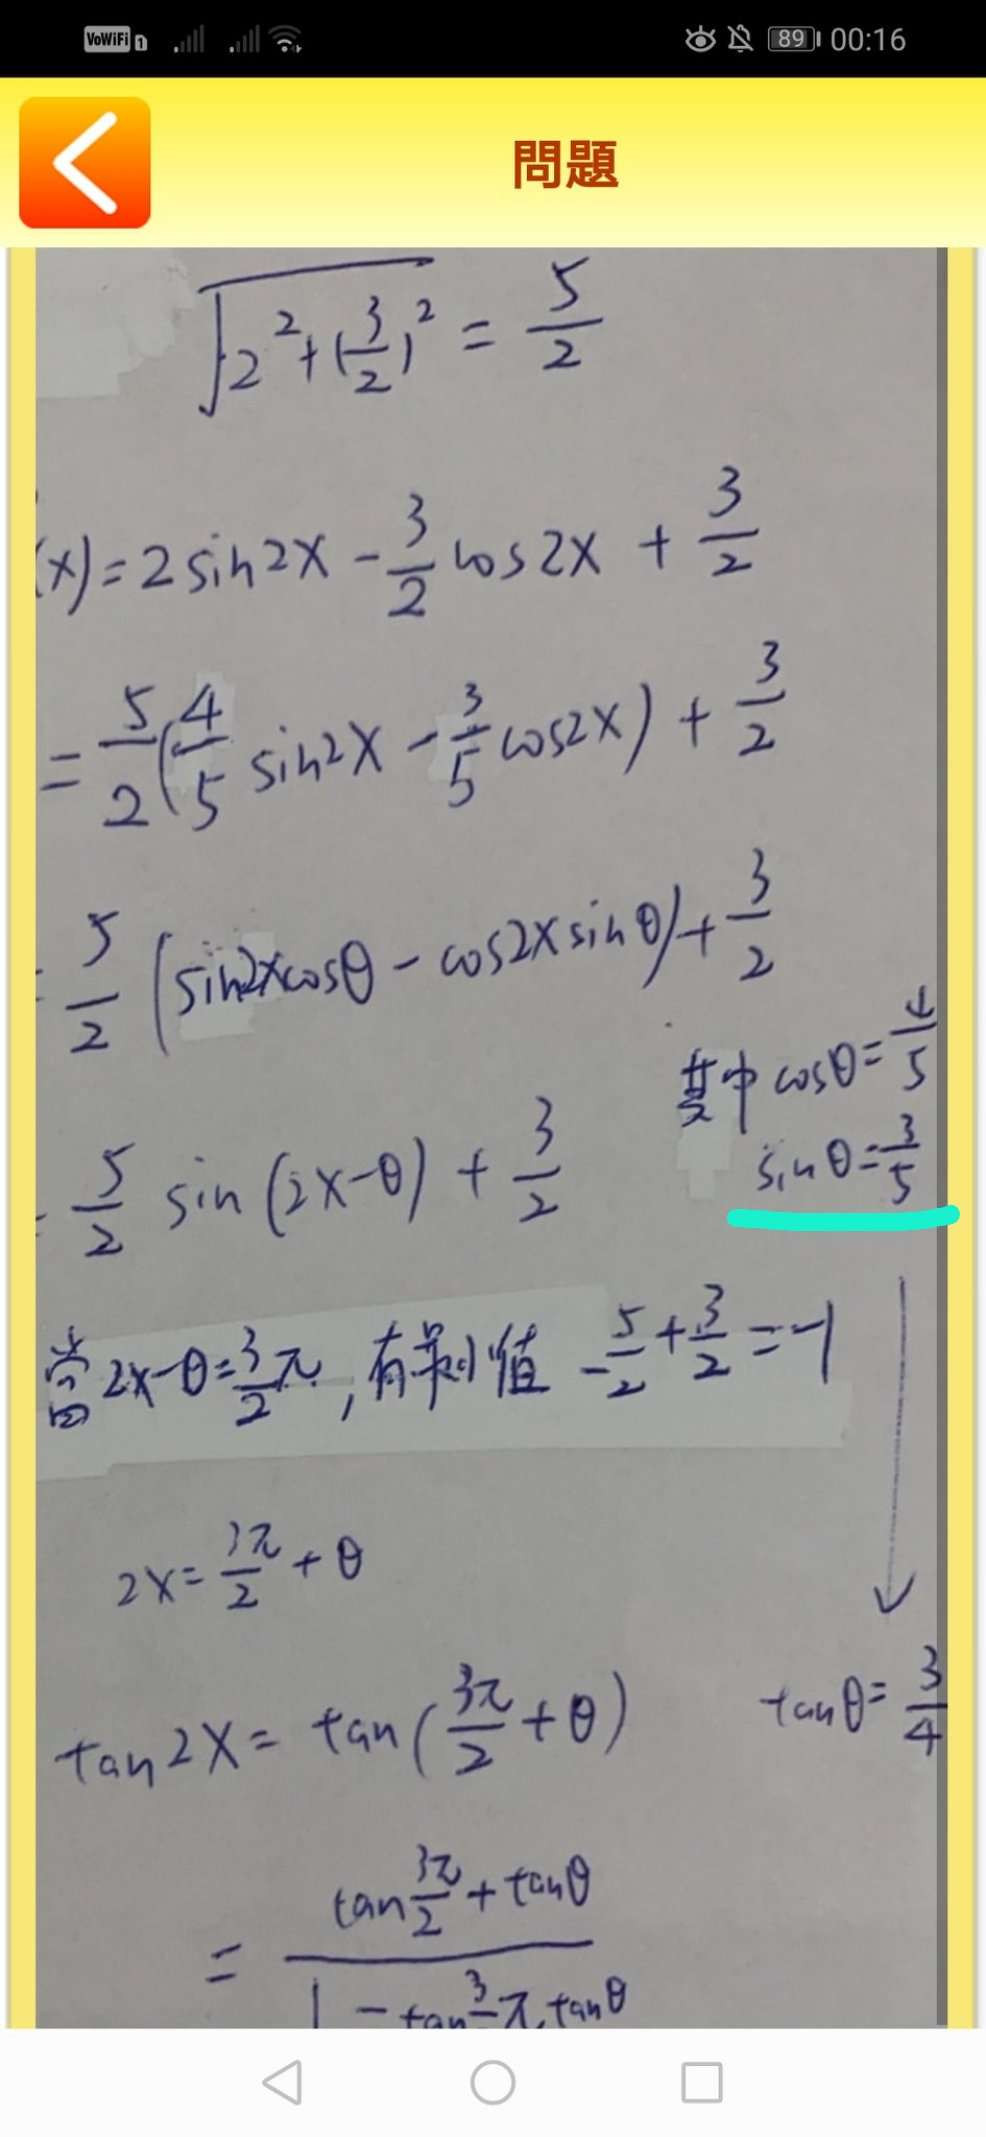 VoWiFi 1 89 00:16
問題
√(2²+(3/2)²) = 5/2
(x)=2sin2x-3/2cos2x+3/2
=5/2(4/5sin2x-3/5cos2x)+3/2
5/2(sin2xcosθ-cos2xsinθ)+3/2
其中cosθ=4/5
sinθ=3/5
5/2 sin(2x-θ)+3/2
當2x-θ=3/2π,有最小值 -5/2+3/2=-1
2x=3π/2+θ
tan2x=tan(3π/2+θ)
tanθ=3/4
=(tan3π/2+tanθ)/(1-tan3/2π tanθ)